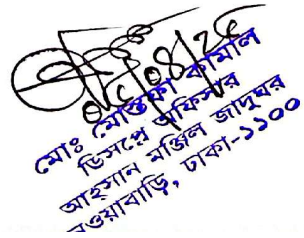 ০৮/০৪/২৫
মোঃ মোস্তফা কামাল
ডিসপ্লে অফিসার
আহসান মঞ্জিল জাদুঘর
নওয়াবাড়ি, ঢাকা-১১০০